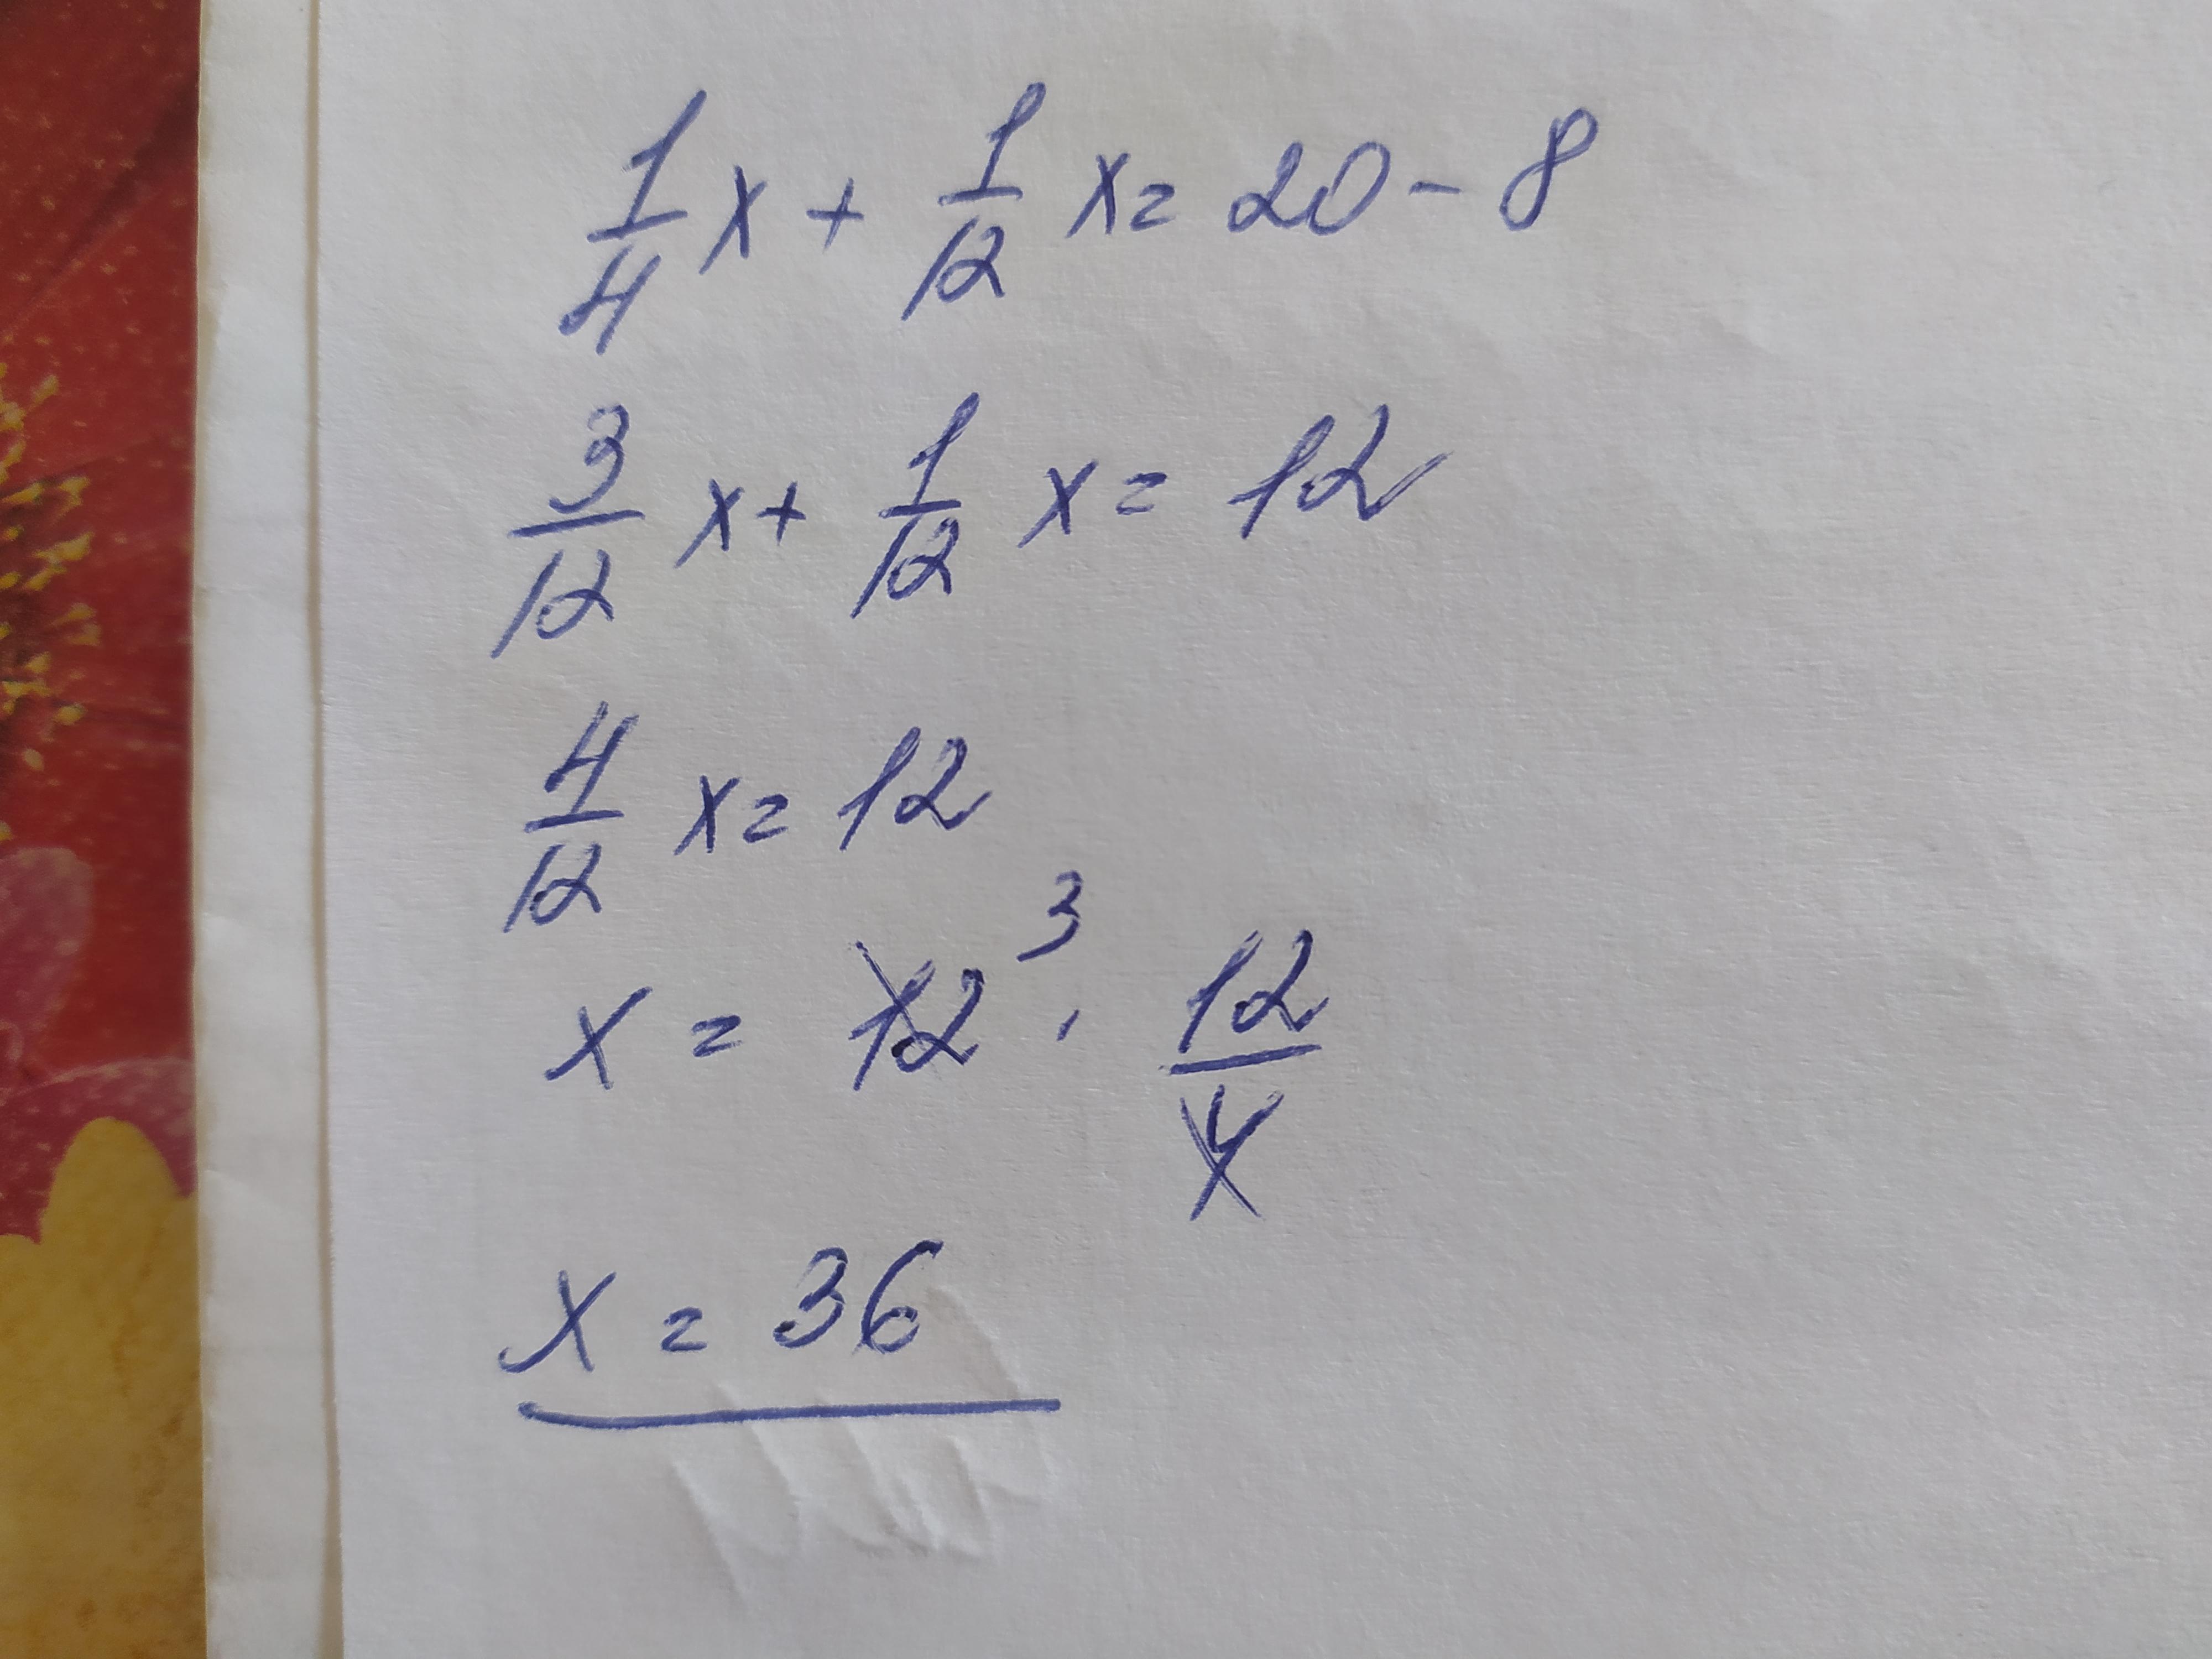 1/4 x + 1/12 x = 20 - 8
3/12 x + 1/12 x = 12
4/12 x = 12
x = 12 3 · 12/4
x = 36